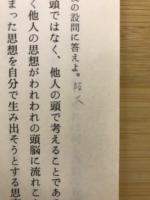 の設問に答えよ。阪大
頭ではなく、他人の頭で考えることであ
く他人の思想がわれわれの頭脳に流れこ
まった思想を自分で生み出そうとする思